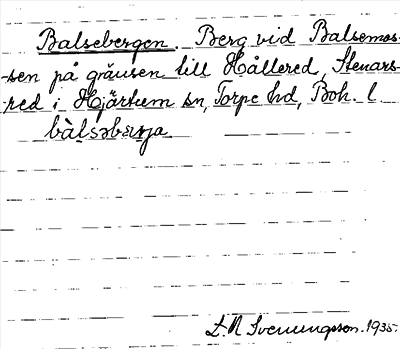 Balsebergen. Berg vid Balsemos-
-sen på gränsen till Hållered, Stenars-
-red i Hjärtum sn, Torpe hd, Boh. l.
bàlsəbærja
L. N. Svenungsson. 1935.